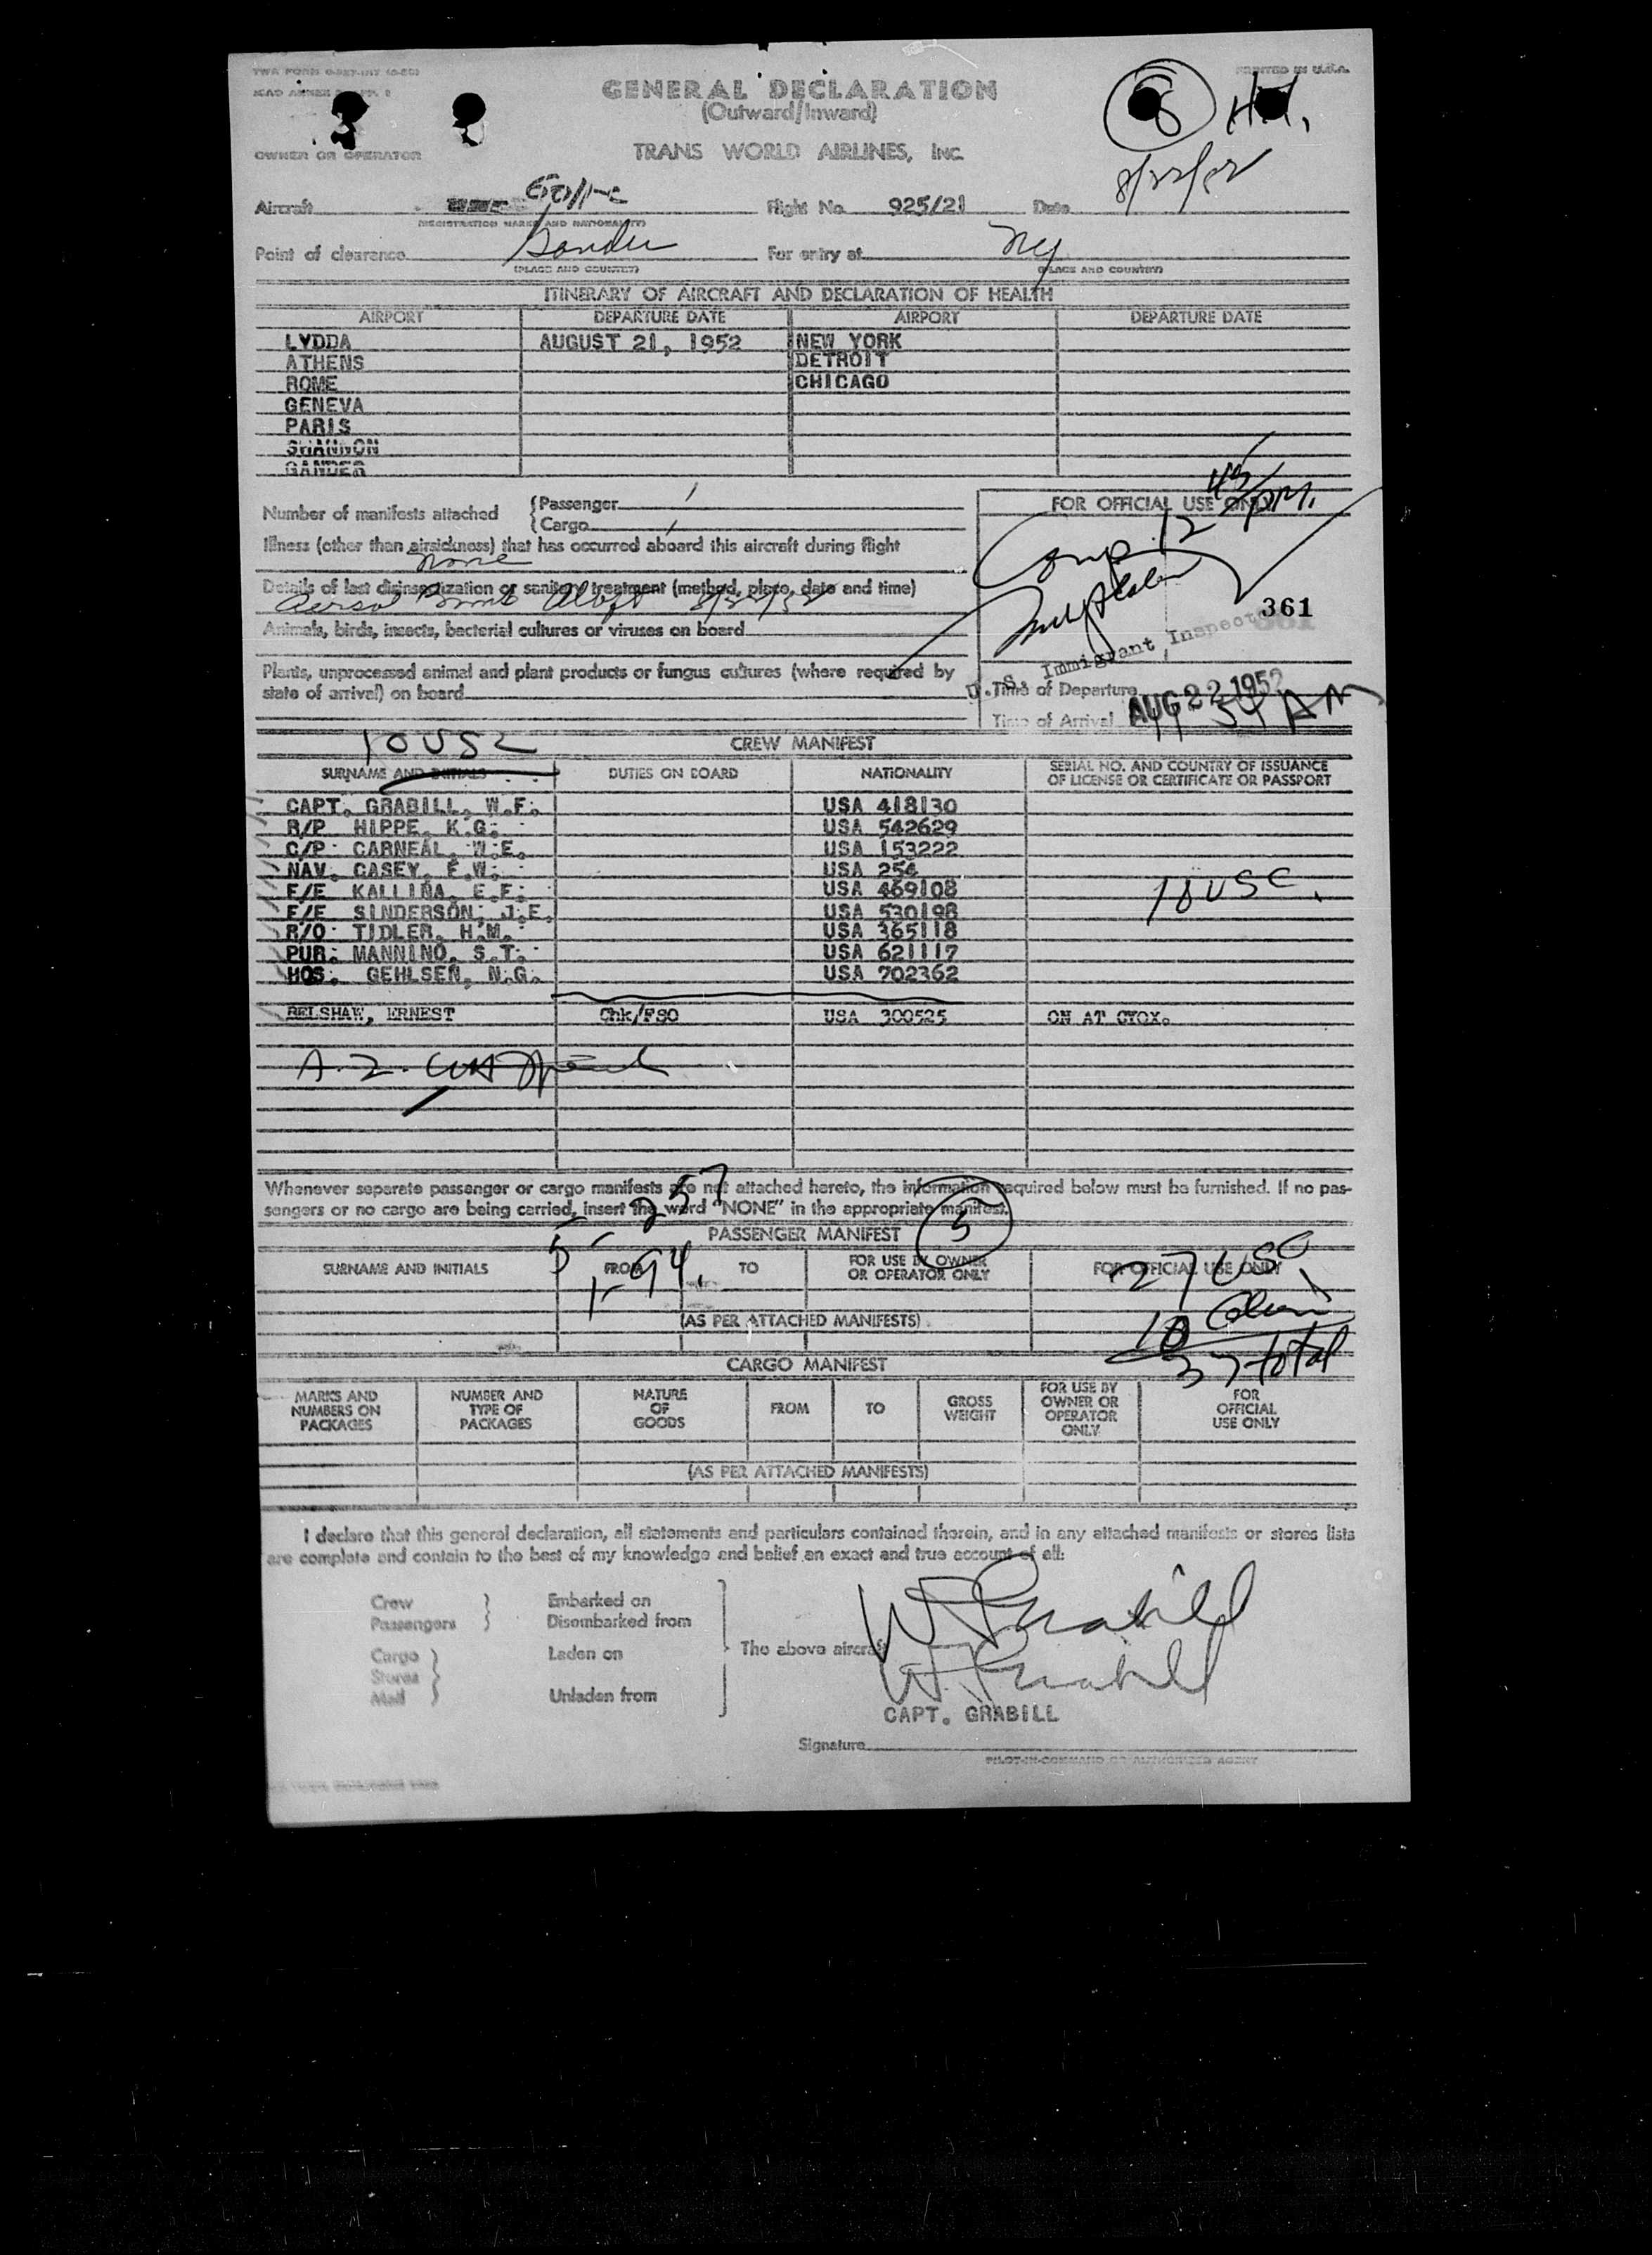 PRINTED IN U.S.A.
GENERAL DECLARATION
(Outward/Inward)
8 H.I.
OWNER OR OPERATOR
TRANS WORLD AIRLINES, INC.
8/22/52
Aircraft Flight No. 925/21 Date
(REGISTRATION MARKS AND NATIONALITY)
Point of clearance Gander For entry at NY
(PLACE AND COUNTRY) (PLACE AND COUNTRY)
ITINERARY OF AIRCRAFT AND DECLARATION OF HEALTH
AIRPORT DEPARTURE DATE AIRPORT DEPARTURE DATE
LYDDA AUGUST 21, 1952 NEW YORK
ATHENS DETROIT
ROME CHICAGO
GENEVA
PARIS
SHANNON
GANDER
Number of manifests attached
{Passenger 1
{Cargo 1
Illness (other than airsickness) that has occurred aboard this aircraft during flight
None
Details of last disinsectization or sanitary treatment (method, place, date and time)
Aersol Bomb Aloft 8/22/52
Animals, birds, insects, bacterial cultures or viruses on board
Plants, unprocessed animal and plant products or fungus cultures (where required by
state of arrival) on board
FOR OFFICIAL USE ONLY
Comp. 12 45/PM.
361
U. S. Immigrant Inspector
Time of Departure
AUG 22 1952
Time of Arrival 11 54 AM
10 USC
CREW MANIFEST
SURNAME AND INITIALS DUTIES ON BOARD NATIONALITY SERIAL NO. AND COUNTRY OF ISSUANCE
OF LICENSE OR CERTIFICATE OR PASSPORT
CAPT. GRABILL, W.F. USA 418130
R/P HIPPE, K.G. USA 542629
C/P CARNEAL, W.E. USA 153222
NAV. CASEY, E.W. USA 254
F/E KALLINA, E.F. USA 469108
F/E SINDERSON, J.E. USA 530198
R/O TIDLER, H.M. USA 365118
PUR. MANNINO, S.T. USA 621117
HOS. GEHLSEN, N.G. USA 702362
10 USC.
BELSHAW, ERNEST Chk/FSO USA 300525 ON AT CYQX.
Whenever separate passenger or cargo manifests are not attached hereto, the information required below must be furnished. If no pas-
sengers or no cargo are being carried, insert the word "NONE" in the appropriate manifest.
5 - 257
5
PASSENGER MANIFEST
SURNAME AND INITIALS FROM TO FOR USE BY OWNER
OR OPERATOR ONLY
FOR OFFICIAL USE ONLY
1-94.
27 USC
10
37 total
(AS PER ATTACHED MANIFESTS)
CARGO MANIFEST
MARKS AND
NUMBERS ON
PACKAGES
NUMBER AND
TYPE OF
PACKAGES
NATURE
OF
GOODS
FROM
TO
GROSS
WEIGHT
FOR USE BY
OWNER OR
OPERATOR
ONLY
FOR
OFFICIAL
USE ONLY
(AS PER ATTACHED MANIFESTS)
I declare that this general declaration, all statements and particulars contained therein, and in any attached manifests or stores lists
are complete and contain to the best of my knowledge and belief an exact and true account of all:
Crew } Embarked on
Passengers } Disembarked from
Cargo } Laden on
Stores
Mail } Unladen from
The above aircraft
W F Grabill
W. F. Grabill
CAPT. GRABILL
Signature
PILOT-IN-COMMAND OR AUTHORIZED AGENT